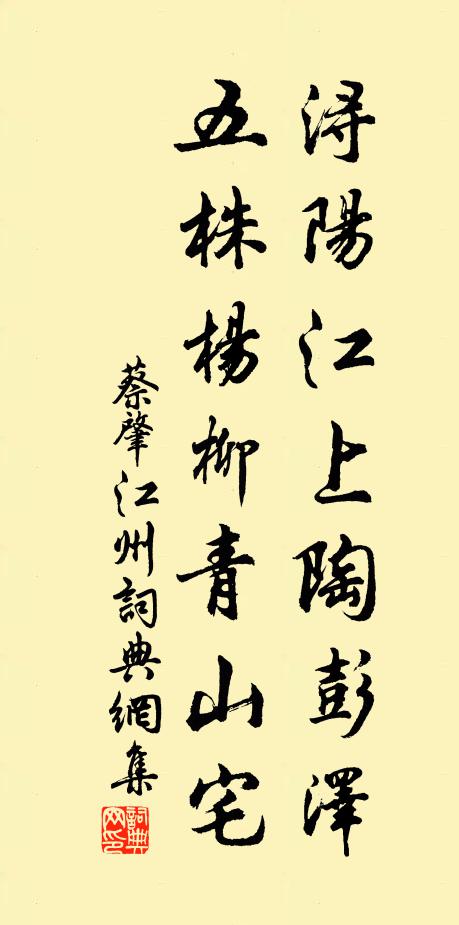 潯陽江上陶彭澤
五株楊柳青山宅
蔡肇江州詞典網集
詞典网印